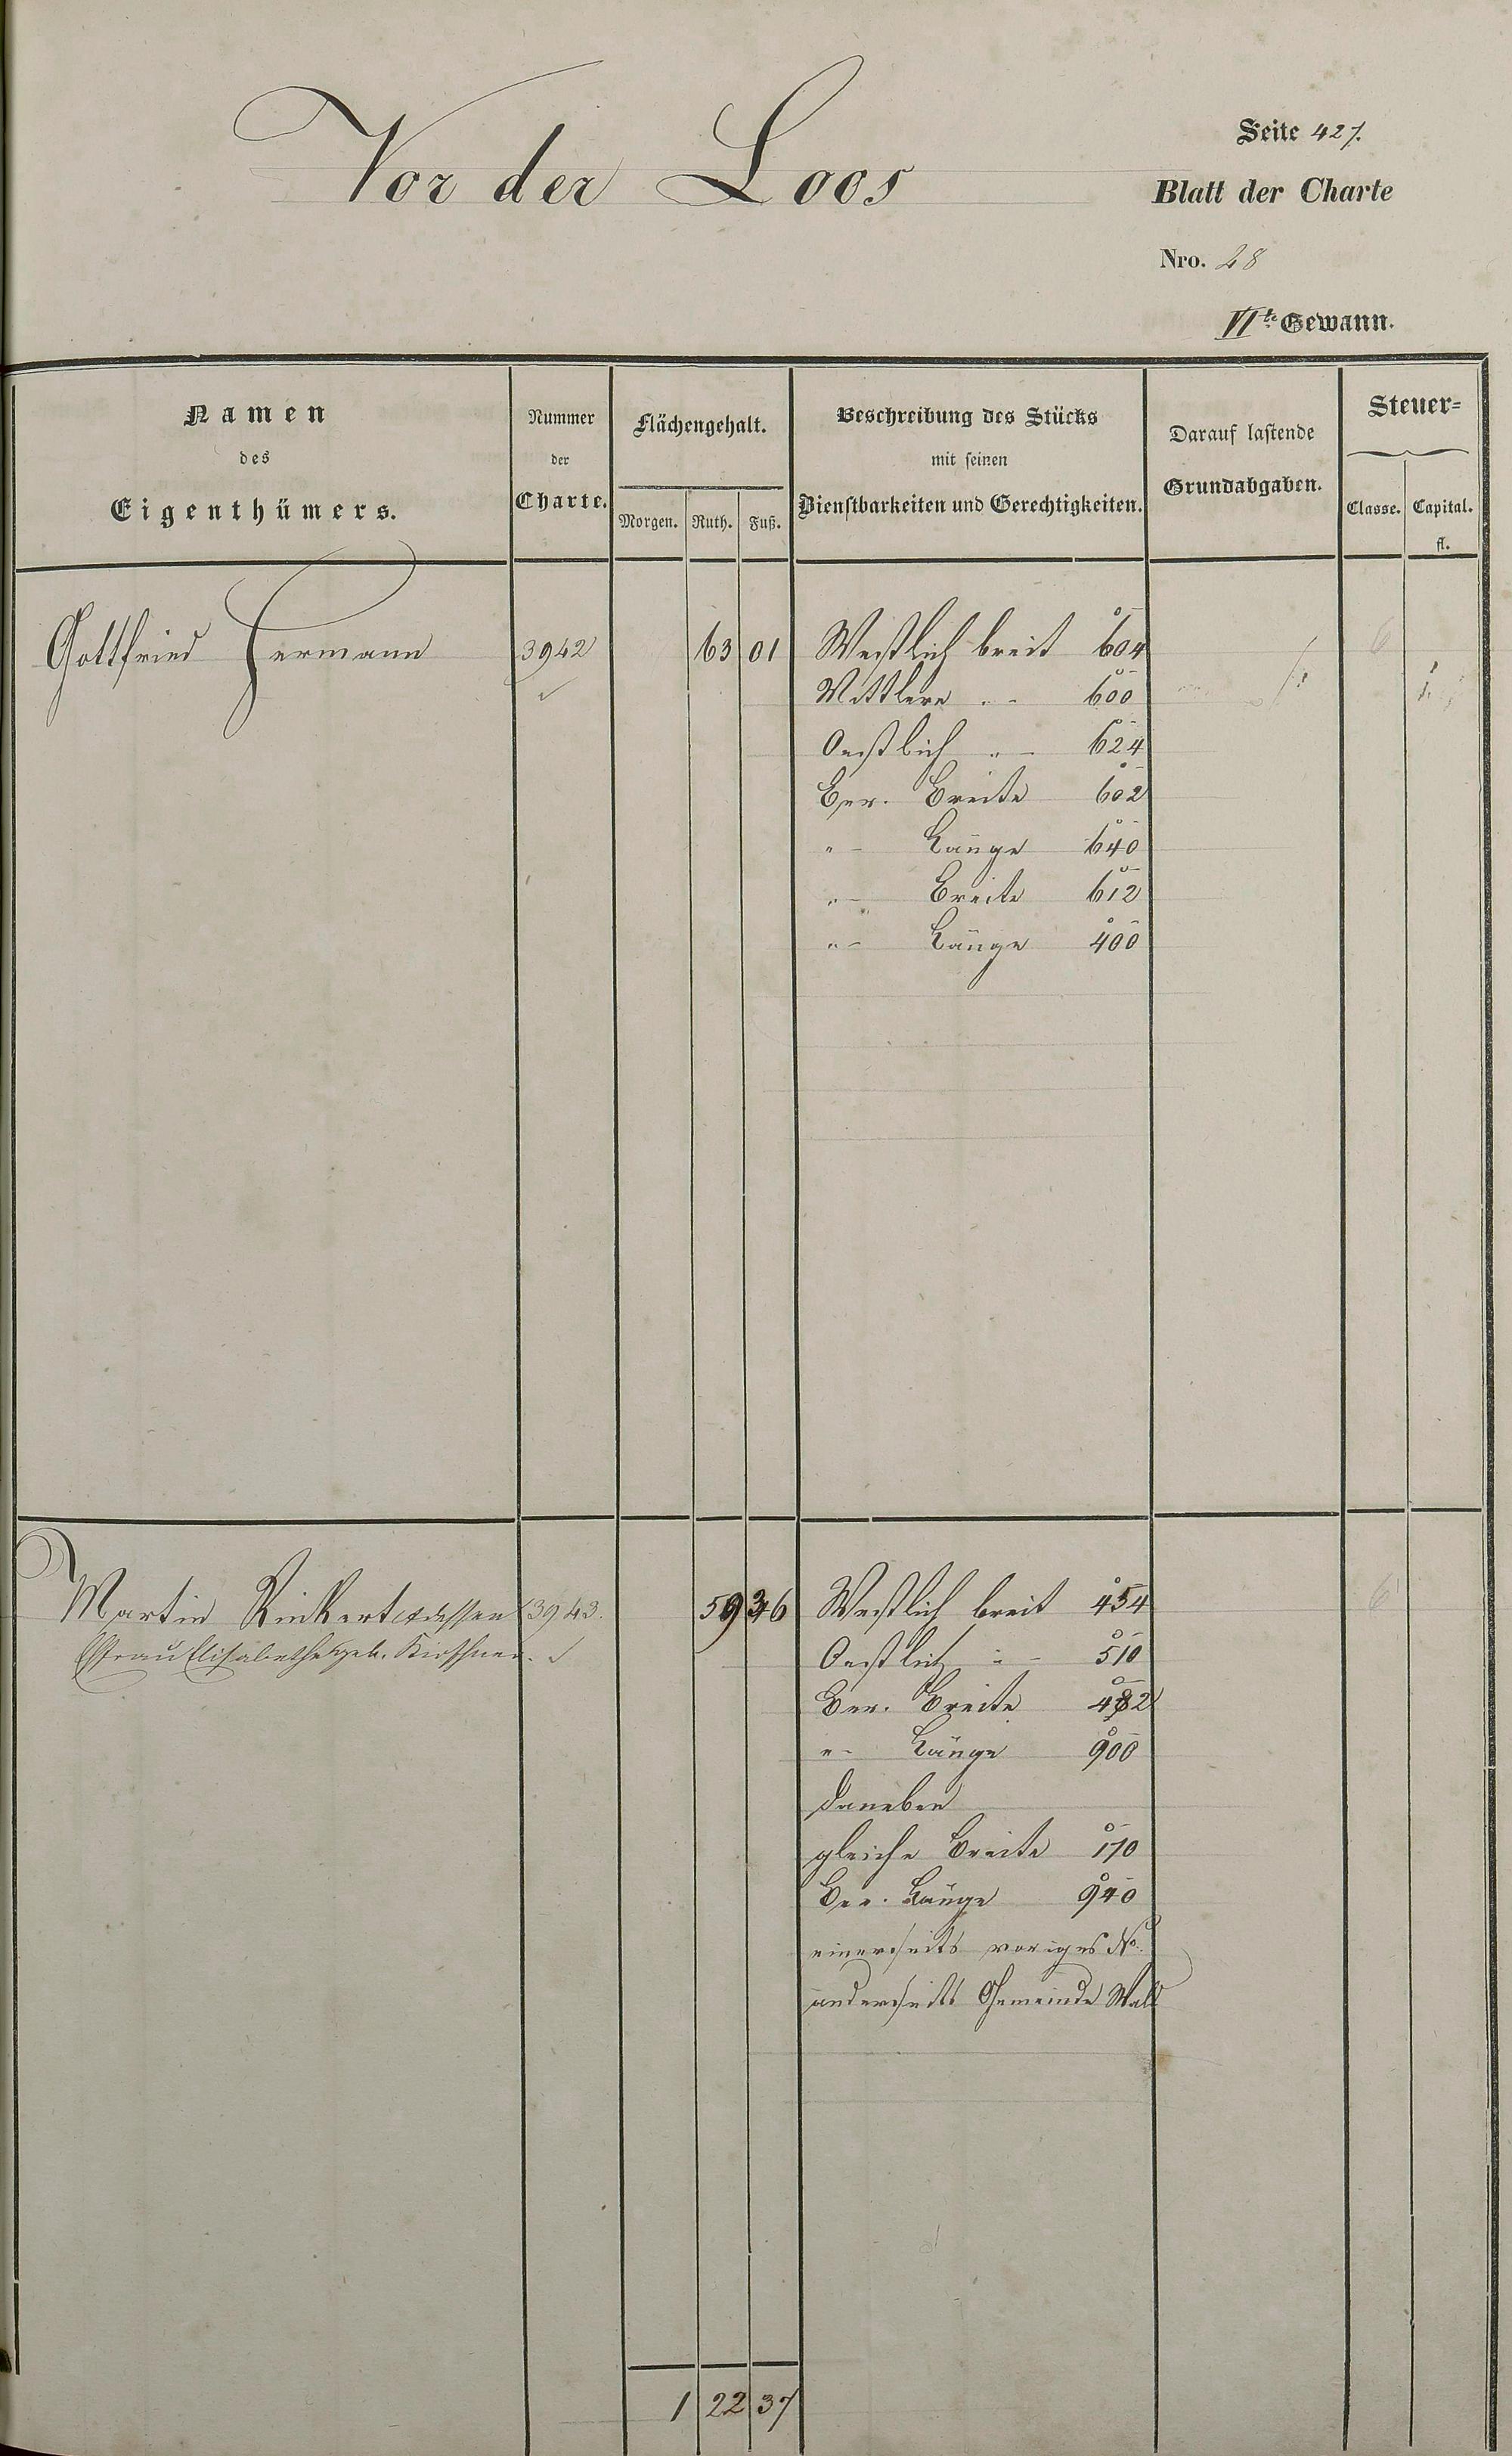 Vor der Loos
Seite 427.
Blatt der Charte
Nro. 28
VIte Gewann.
Namen
des
Eigenthümers.
Nummer
der
Charte.
Flächengehalt.
Morgen. Ruth. Fuß.
Beschreibung des Stücks
mit seinen
Dienstbarkeiten und Gerechtigkeiten.
Darauf lastende
Grundabgaben.
Steuer-
Classe. Capital.
fl.
Gottfried Hermann 3942 63 01 Westlich breit 604 6
Mittlere " 600
Oestlich " 624
Ber. Breite 602
" Länge 640
" Breite 612
" Länge 400
Martin Rinkert et dessen 3943. 59 36 Westlich breit 454 6
Ehefrau Elisabetha geb. Kirschner. Oestlich " 510
Ber. Breite 482
" Länge 900
daneben
gleiche Breite 170
Ber. Länge 940
einerseits voriges No.
anderseits Gemeinde Wald
1 22 37